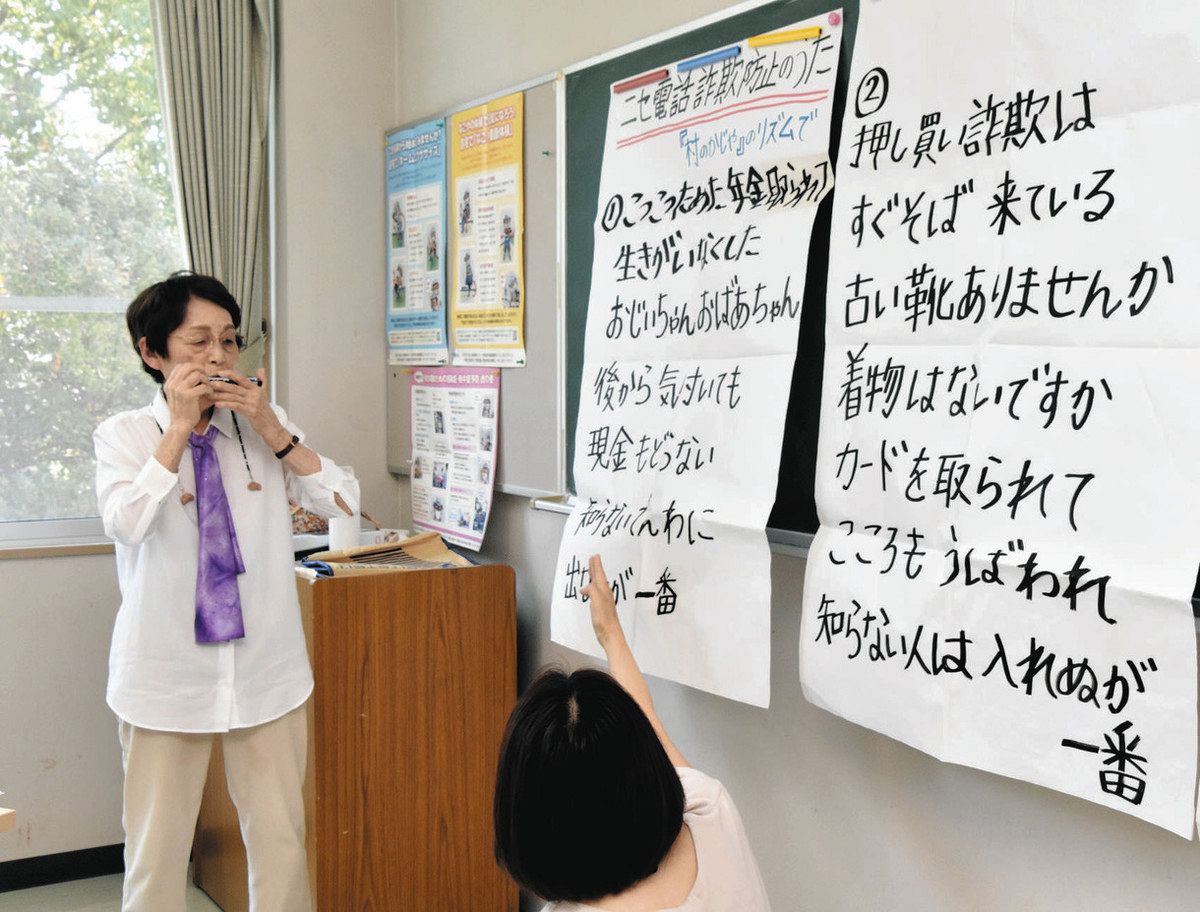 ニセ電話詐欺防止のうた
『村のかじや』のリズムで
①こつこつためた年金取られて
生きがいなくした
おじいちゃんおばあちゃん
後から気付いても
現金もどらない
知らないでんわに
出 が一番
②
押し買い詐欺は
すぐそば来ている
古い靴ありませんか
着物はないですか
カードを取られて
こころもうばわれ
知らない人は入れぬが
一番